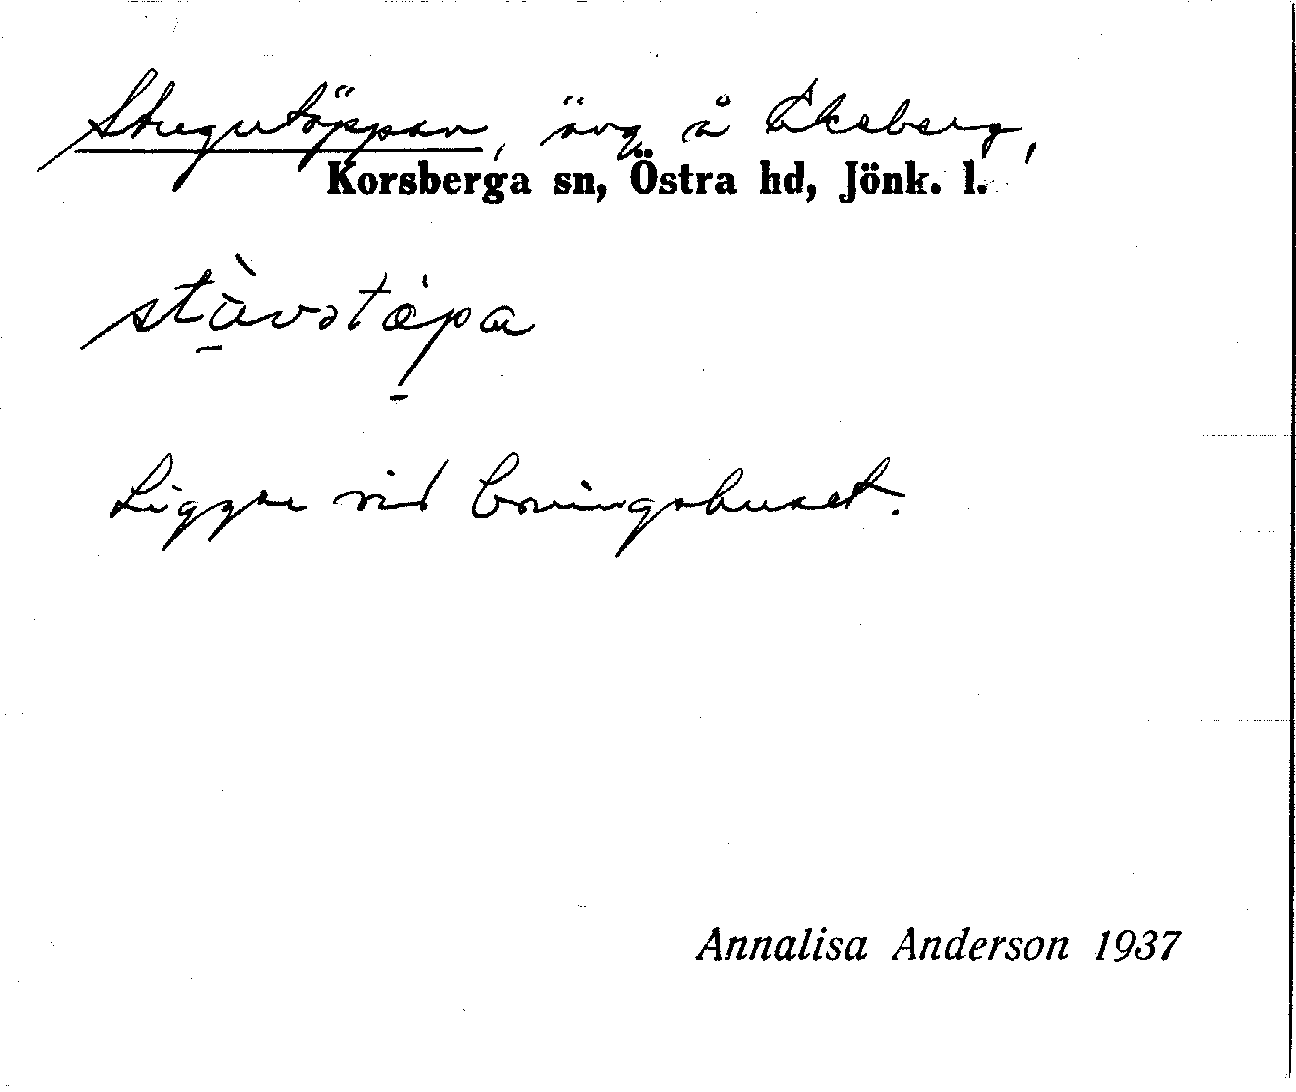 Stugutäppan, äng å Ekeberg,
Korsberga sn, Östra hd, Jönk. l.
Ligger vid boningshuset.
Annalisa Anderson 1937